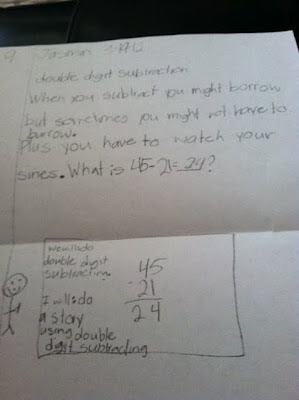 Jasmin
double digit subtraction
When you subtract you might borrow
but sometimes you might not have to
burrow.
Plus you have to watch your
sines. What is 45-21=24?
we will do
double digit
subtracting.
I will do
a story
using double
digit subtracting
45
21
24